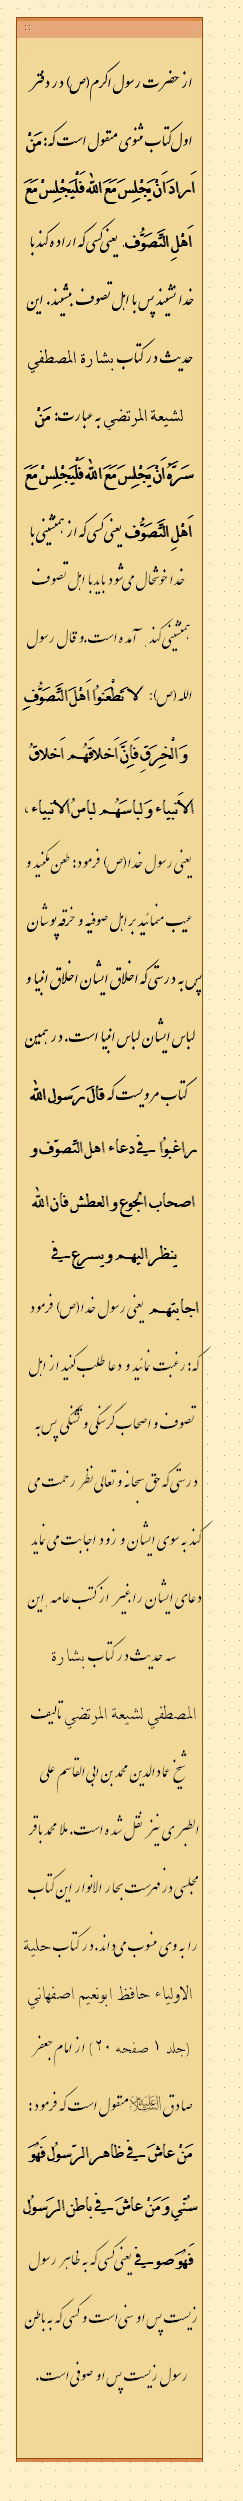 از حضرت رسول اکرم(ص) در دفتر
اول کتاب مثنوی منقول است که: مَنْ
اَرادَ اَنْ یَجْلِسَ مَعَ الله فَلْیَجْلِسْ مَعَ
اَهْلِ التَّصَوُّف. یعنی کسی که اراده کند با
خدا نشیند پس با اهل تصوف بنشیند. این
حدیث در کتاب بشارة المصطفي
لشیعة المرتضي به عبارت: مَنْ
سَرَّهُ اَنْ یَجْلِسَ مَعَ الله فَلْیَجْلِسْ مَعَ
اَهْلِ التَّصَوُّف یعنی کسی که از همنشینی با
خدا خوشحال می‌شود باید با اهل تصوف
همنشینی کند. آمده است.و قال رسول
الله(ص): لا تَطْعَنوُا اَهْلَ التَّصَوُّفِ
وَ الْخِرَقِ فَاِنَّ اَخلاقَهُم اَخلاقُ
الاَنبیاء وَ لباسَهُم لباسُ الاَنبیاء ،
یعنی رسول خدا(ص) فرمود: طعن مکنید و
عیب منمائید بر اهل صوفیه و خرقه پوشان
پس به درستی که اخلاق ایشان اخلاق انبیا و
لباس ایشان لباس انبیا است. در همین
کتاب مرویست که قالَ رَسول الله
راغبوُا في دعاء اهل التَّصوّف و
اصحاب الجوع و العطش فان الله
ینظر الیهم و یسرع في
اجابتهم یعنی رسول خدا(ص) فرمود
که: رغبت نمائید و دعا طلب کنید از اهل
تصوف و اصحاب گرسنگی و تشنگی پس به
درستی که حق سبحانه و تعالی نظر رحمت می
کند به سوی ایشان و زود اجابت می نماید
دعای ایشان را.غیر از کتب عامه ,این
سه حدیث در کتاب بشارة
المصطفي لشیعة المرتضي تالیف
شیخ عماد الدین محمد بن ابی القاسم علی
الطبری نیز نقل شده است. ملا محمد باقر
مجلسی در فهرست بحار الانوار این کتاب
را به وی منسوب می‌داند.در کتاب حلیة
الاولیاء حافظ ابونعیم اصفهاني
(جلد ۱ صفحه ۲۰) از امام جعفر
صادق علیه‌السلام منقول است که فرمود:
مَنْ عاشَ في ظاهر الرّسوُل فَهُوَ
سُنّي وَ مَنْ عاشَ في باطن الرَسوُل
فَهُوَ صوفي یعنی کسی که به ظاهر رسول
زیست پس او سنی است و کسی که به باطن
رسول زیست پس او صوفی است.